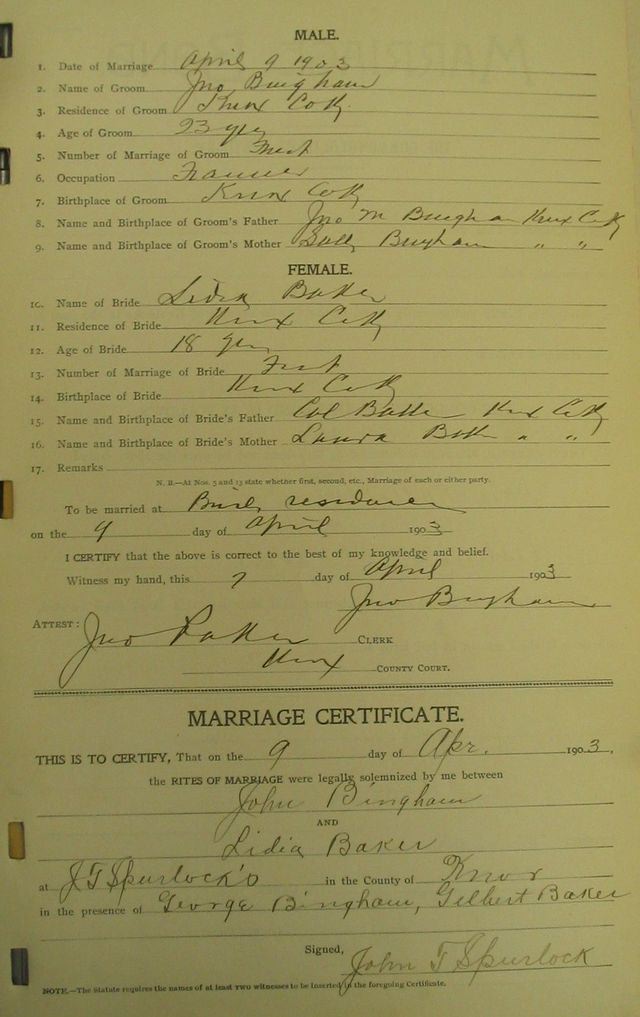 MALE.
1. Date of Marriage April 9 1903
2. Name of Groom Jno Bingham
3. Residence of Groom Knox Co Ky
4. Age of Groom 23 yrs
5. Number of Marriage of Groom First
6. Occupation Farmer
7. Birthplace of Groom Knox Co Ky
8. Name and Birthplace of Groom's Father Jno M Bingham Knox Co Ky
9. Name and Birthplace of Groom's Mother Sally Bingham " "
FEMALE.
10. Name of Bride Lidia Baker
11. Residence of Bride Knox Co Ky
12. Age of Bride 18 yrs
13. Number of Marriage of Bride First
14. Birthplace of Bride Knox Co Ky
15. Name and Birthplace of Bride's Father Baker Knox Co Ky
16. Name and Birthplace of Bride's Mother Laura Baker " "
17. Remarks
N. B.—At Nos. 5 and 13 state whether first, second, etc., Marriage of each or either party.
To be married at residence
on the 9 day of April 1903
I CERTIFY that the above is correct to the best of my knowledge and belief.
Witness my hand, this 7 day of April 1903
Jno Bingham
ATTEST: Jno Parker CLERK
Knox COUNTY COURT.
MARRIAGE CERTIFICATE.
THIS IS TO CERTIFY, That on the 9 day of Apr. 1903,
the RITES OF MARRIAGE were legally solemnized by me between
John Bingham
AND
Lidia Baker
at J T Spurlock's in the County of Knox
in the presence of George Bingham, Gilbert Baker
Signed,
John T Spurlock
NOTE.—The Statute requires the names of at least two witnesses to be inserted in the foregoing Certificate.